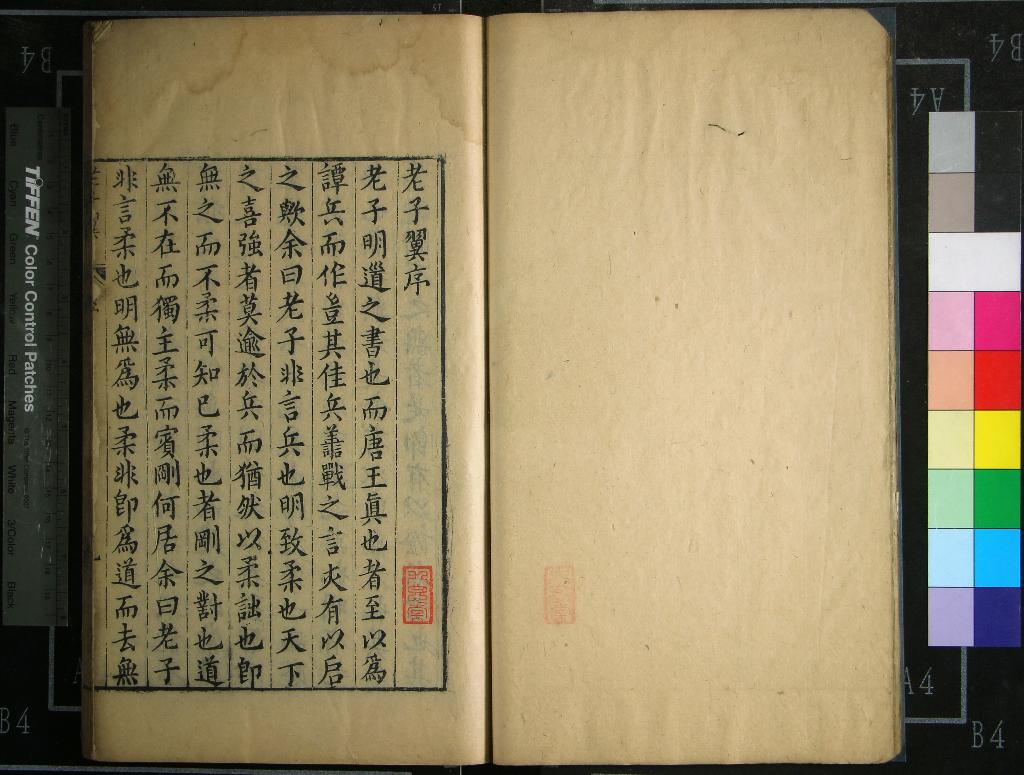 老子翼序
老子明道之書也而唐王眞也者至以爲
譚兵而作豈其佳兵善戰之言夾有以启
之歟余曰老子非言兵也明致柔也天下
之喜強者莫逾於兵而猶然以柔詘也卽
無之而不柔可知已柔也者剛之對也道
無不在而獨主柔而賓剛何居余曰老子
非言柔也明無爲也柔非卽爲道而去無
TIFFEN Color Control Patches
Blue Cyan Green Yellow Red Magenta White 3/Color Black
B4
A4
B4
B4
A4
B4